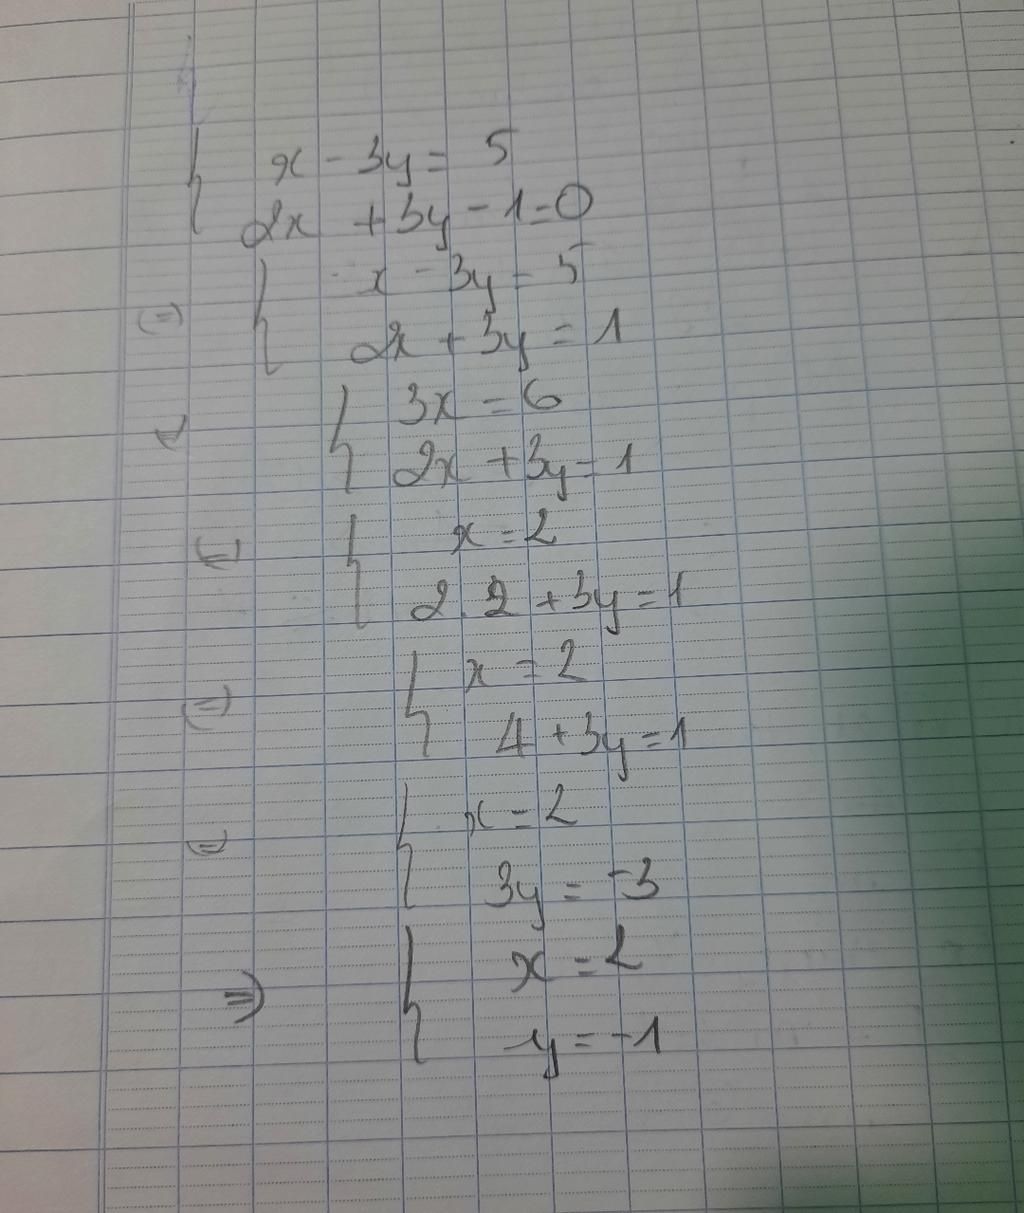 { x - 3y = 5
2x + 3y - 1 = 0
(=) { x - 3y = 5
2x + 3y = 1
{ 3x = 6
2x + 3y = 1
(=) { x = 2
2.2 + 3y = 1
(=) { x = 2
4 + 3y = 1
=) { x = 2
3y = -3
=) { x = 2
y = -1